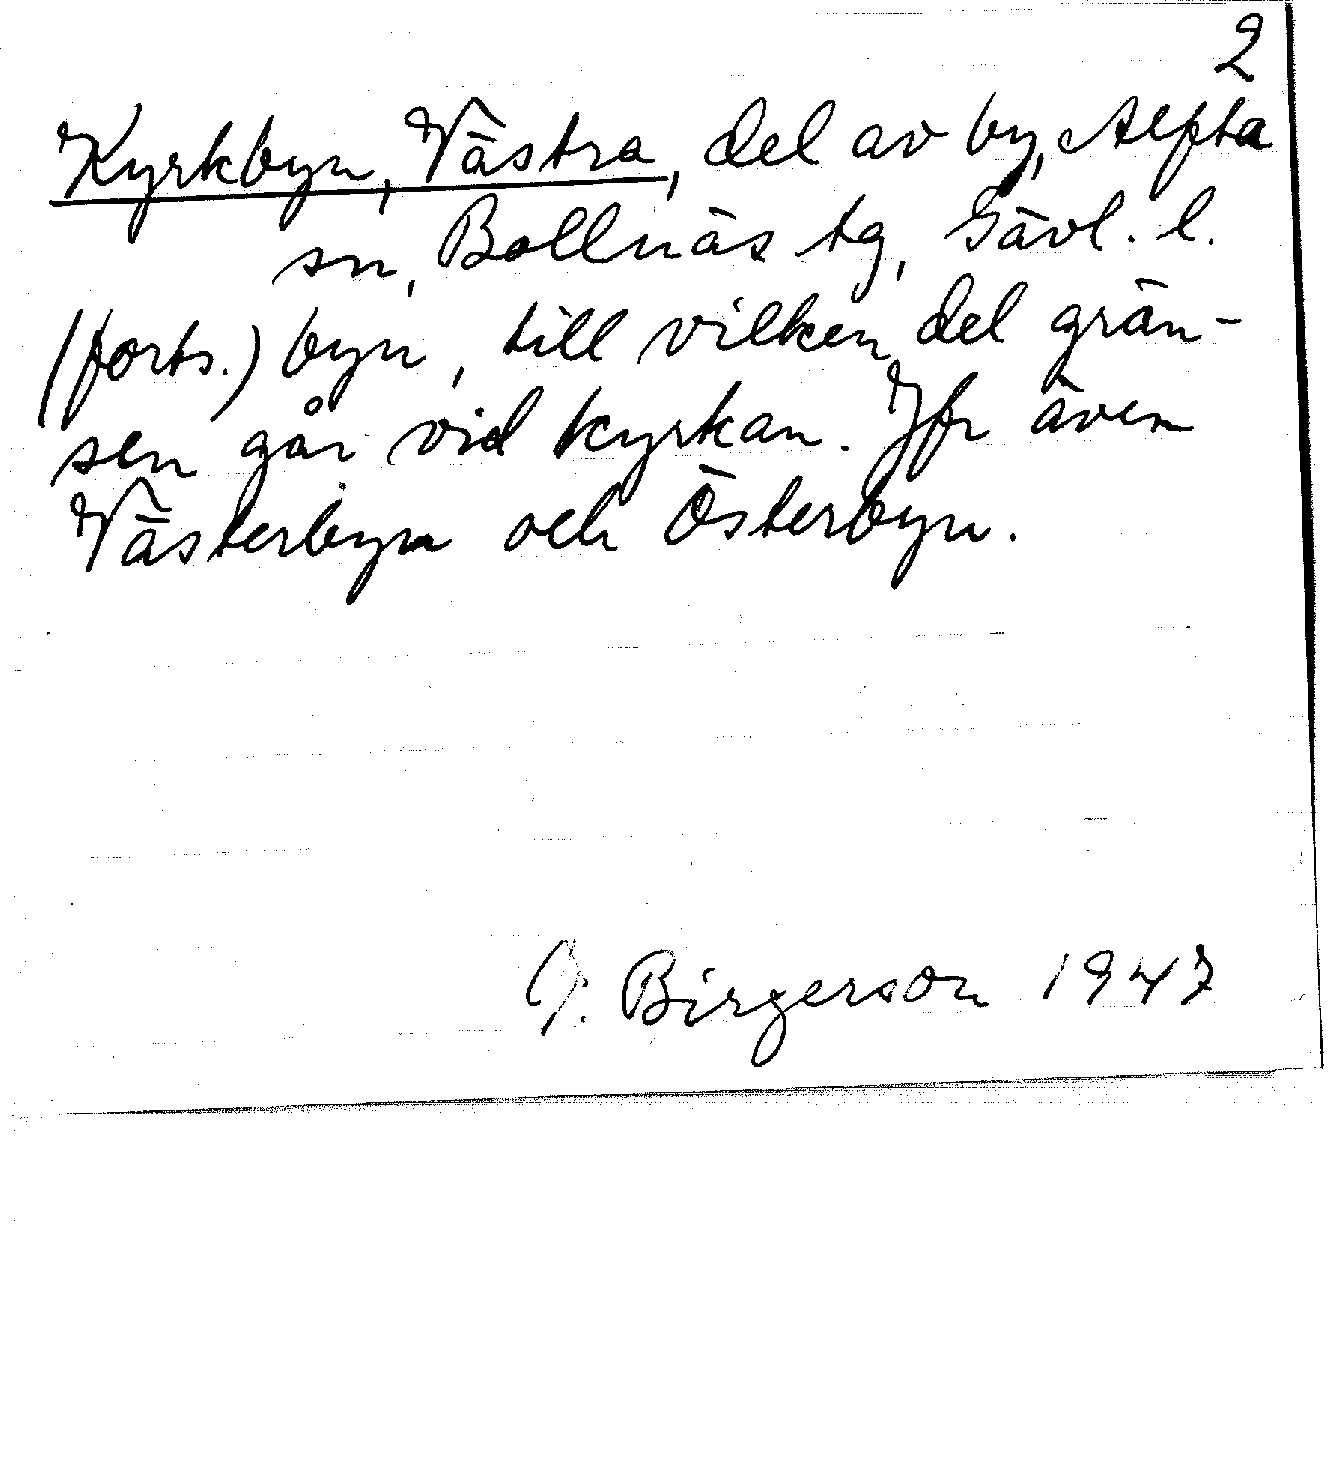 2
Kyrkbyn, Västra, del av by, Alfta
sn, Bollnäs tg, Gävl. l.
(forts.) byn, till vilken del grän-
sen går vid kyrkan. Jfr även
Västerbyn och Österbyn.
Birgerson 1947